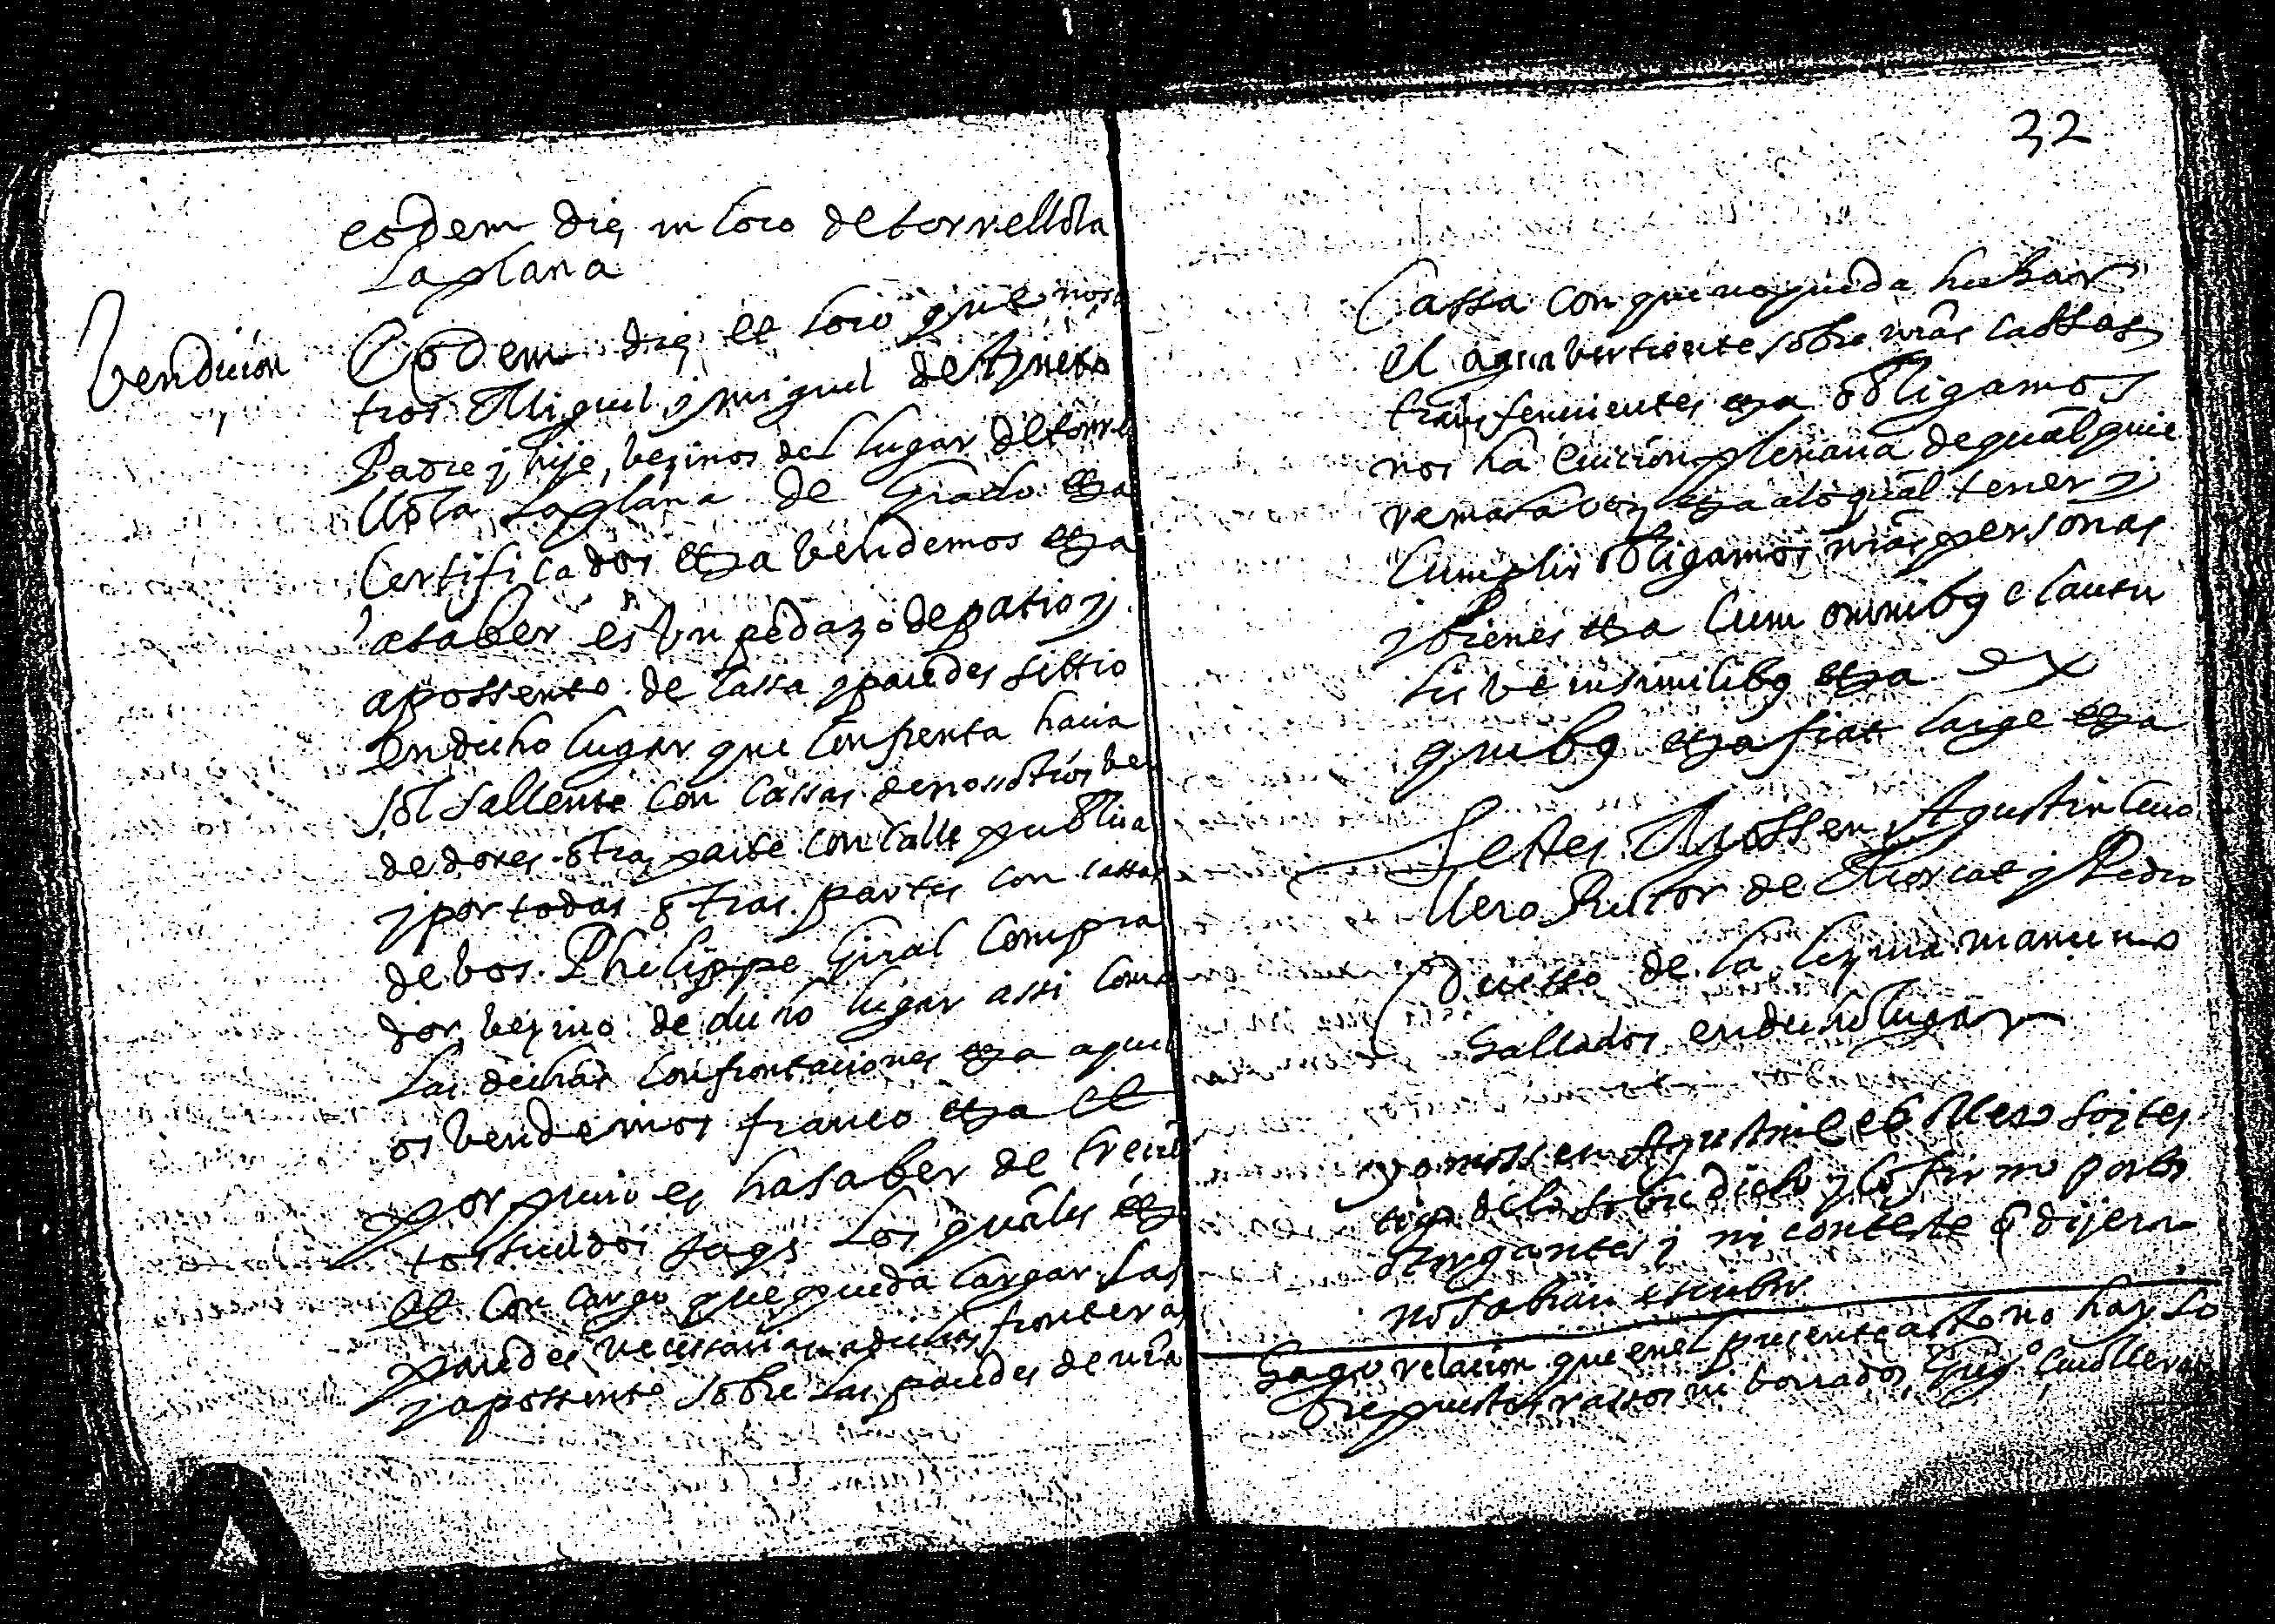 32
eodem die in loco de torrellola
la plana
Vendicion
Eodem die et loco que noso
tros Miguel y miguel de
Padre y hijo, bezinos del lugar de torre
llola la plana de Grado etza
Certificados etza bendemos etza
asaber es Un pedazo de patio y
apossento de Cassa y paredes sittio
en dicho lugar que Confrenta hacia
sol sallente con Cassas de nosotros be
dedores otra parte con Calle publica
y por todas otras partes con cassas
de bos Philippe Giral Compra
dor, bezino de dicho lugar assi como
las dichas Confrontaciones etza aquel
os bendemos franco etza et
por precio es hasaber de trecie
tos sueldos jaqs los quales etz
et con cargo que pueda Cargar las
paredes necessarias a dichas fronteras
y apossento sobre las paredes de nra
Cassa con que no pueda hechar
el agua bertiente sobre nras cassas
transferientes etza obligamos
nos ha Eviction plenaria de qualquie
re mala boz etza a lo qual tener y
Cumplir obligamos nras personas
y bienes etza Cum omnibq clausu
lis ut in similibq etza ex
quibq etza fiat large etza
Testes Mossen Agustin Cuo
llero Rector de y Pedro
de la manumo
hallados en dicho lugar
yo mossen Agustin soi tes
tigo de lo sobredicho y lo firmo por los
otorgantes y mi conteste q dijeron
no sabian escribir
Hago relacion que en el presente acto no hay so
brepuestos rassos ni borrados